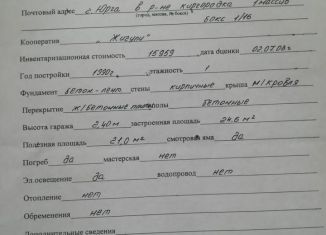 Почтовый адрес г. Юрга в р-не киргородка 1 массив
(город, массив, № бокса) бокс 1/1б
Кооператив "Жигули"
Инвентаризационная стоимость 15959 дата оценки 02.07.08г
Год постройки 1990г. этажность 1
Фундамент бетон-лент стены кирпичные крыша м/кровля
Перекрытие ж/бетонные плиты полы бетонные
Высота гаража 2,40м застроенная площадь 24.6 м²
Полезная площадь 21,0 м² смотровая яма да
Погреб да мастерская нет
Эл.освещение да водопровод нет
Отопление нет
Обременения нет
Дополнительные сведения